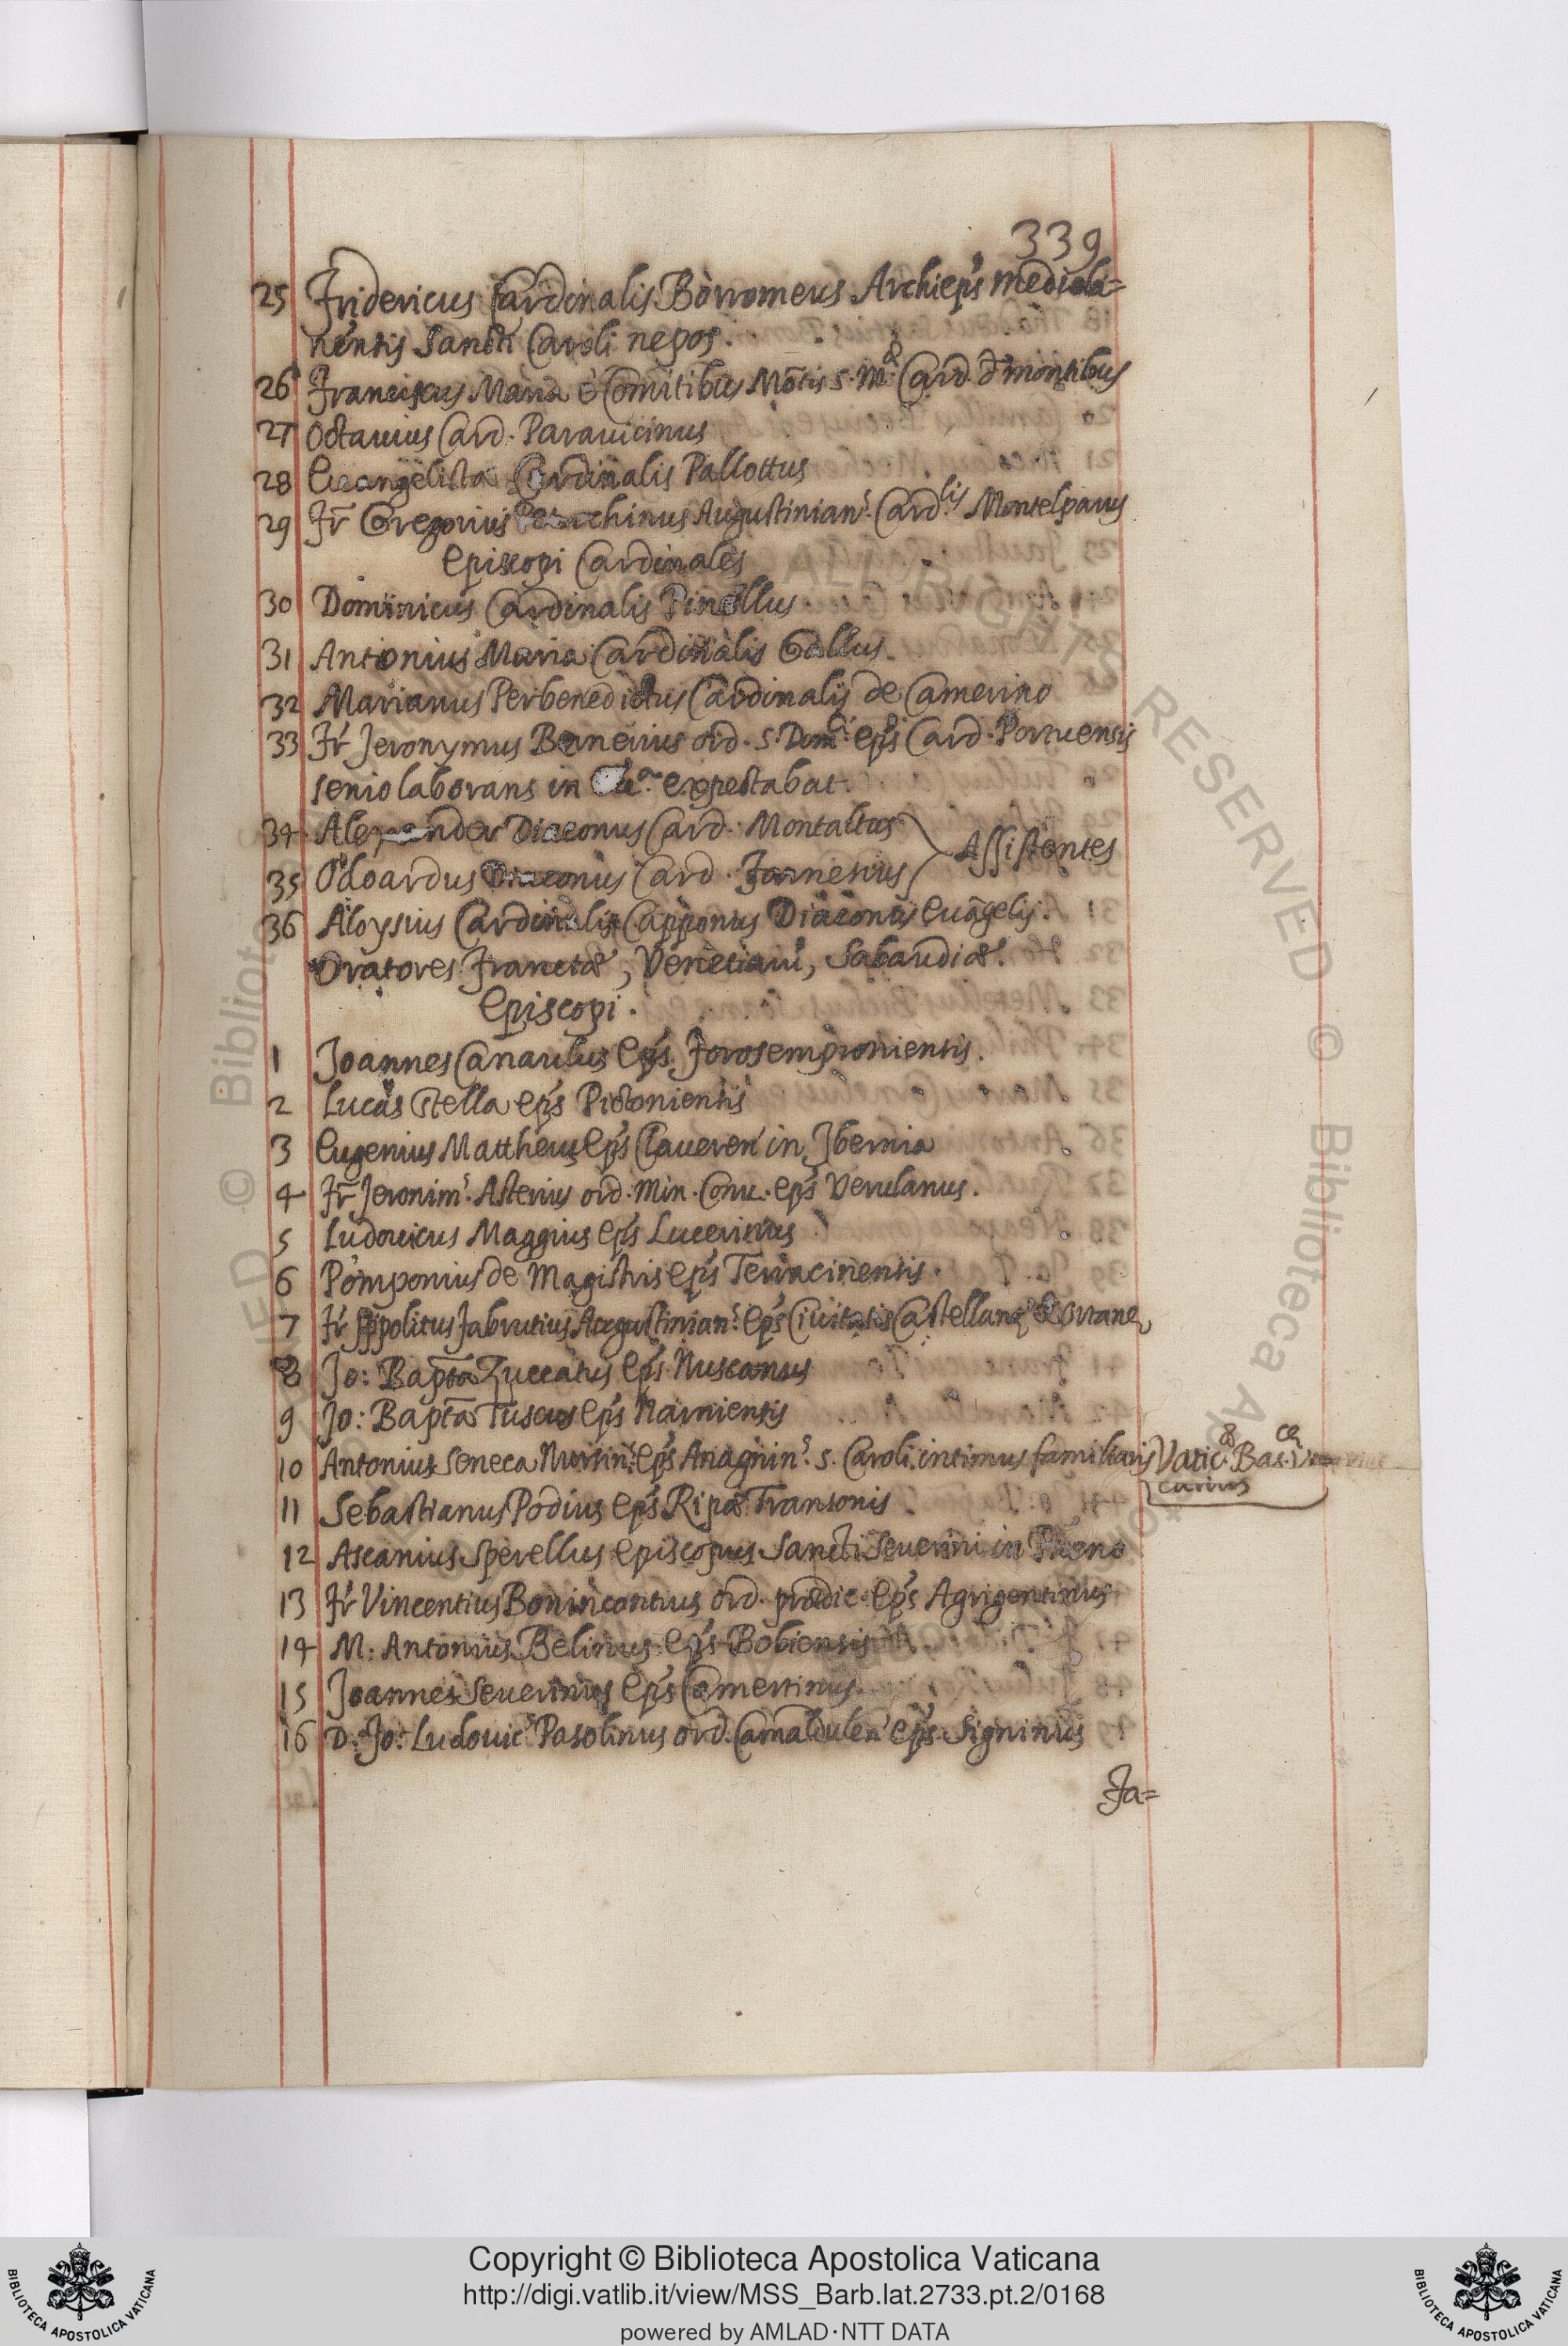 339
25 Fridericus Cardinalis Borromeus Archiep̃s mediola=
nensis Sancti Caroli nepos.
26 Franciscus Maria è Comitibus Mõtis S. M.æ Card. d' montibus
27 Octauius Card. Parauicinus
28 Euangelista Cardinalis Pallottus
29 Fr̃ Gregorius Petrochinus Augustinian.s Card.lis Montelparus
Episcopi Cardinales
30 Dominicus Cardinalis Pinellus
31 Antonius Maria Cardinalis Gallus.
32 Marianus Perbenedictus Cardinalis de Camerino
33 Fr̃ Jeronymus Bernerius ord. S. Dom.ci ep̃s Card. Portuensis
senio laborans in expectabat.
34 Alexander Diaconus Card. Montaltus
35 Odoardus Diaconus Card. Farnesius } Assistentes
36 Aloysius Cardinalis Capponus Diaconus Euãgelij.
Oratores Franciæ, Venetiarũ, Sabaudiæ.
Episcopi.
1 Joannes Canaulus Ep̃s Forosemproniensis.
2 Lucas Stella ep̃s
3 Eugenius Mattheus Ep̃s Claueren' in Jbernia
4 Fr̃ Jeronim.s Asterius ord. Min. Conu. ep̃s Verulanus.
5 Ludouicus Maggius Ep̃s Lucerinus
6 Pomponius de Magistris ep̃s Terracinensis.
7 Fr̃ Jppolitus Fabrutius Augustinian.s Ep̃s Ciuitatis Castellanę & Ortanę
8 Jo: Bapt̃a Zuccatus Ep̃s Nuscanus
9 Jo: Bapt̃a Tuscus Ep̃s Narniensis
10 Antonius Seneca Ep̃s Anagnin.s S. Caroli intimus familiaris Vatic.æ Bas.cæ
carius
11 Sebastianus Podius Ep̃s Ripæ Transonis
12 Ascanius Sperellus episcopus Sancti Seuerini in Piceno
13 Fr̃ Vincentius Bonincontius ord. prædic. Ep̃s Agrigentinus
14 M: Antonius Belinus Ep̃s Bobiensis
15 Joannes Seuerinus Ep̃s Camertinus
16 D. Jo: Ludouic.s Pasolinus ord. Camaldulen' Ep̃s Signinus
Fa=
Copyright © Biblioteca Apostolica Vaticana
http://digi.vatlib.it/view/MSS_Barb.lat.2733.pt.2/0168
powered by AMLAD·NTT DATA
BIBLIOTECA APOSTOLICA VATICANA
BIBLIOTECA APOSTOLICA VATICANA